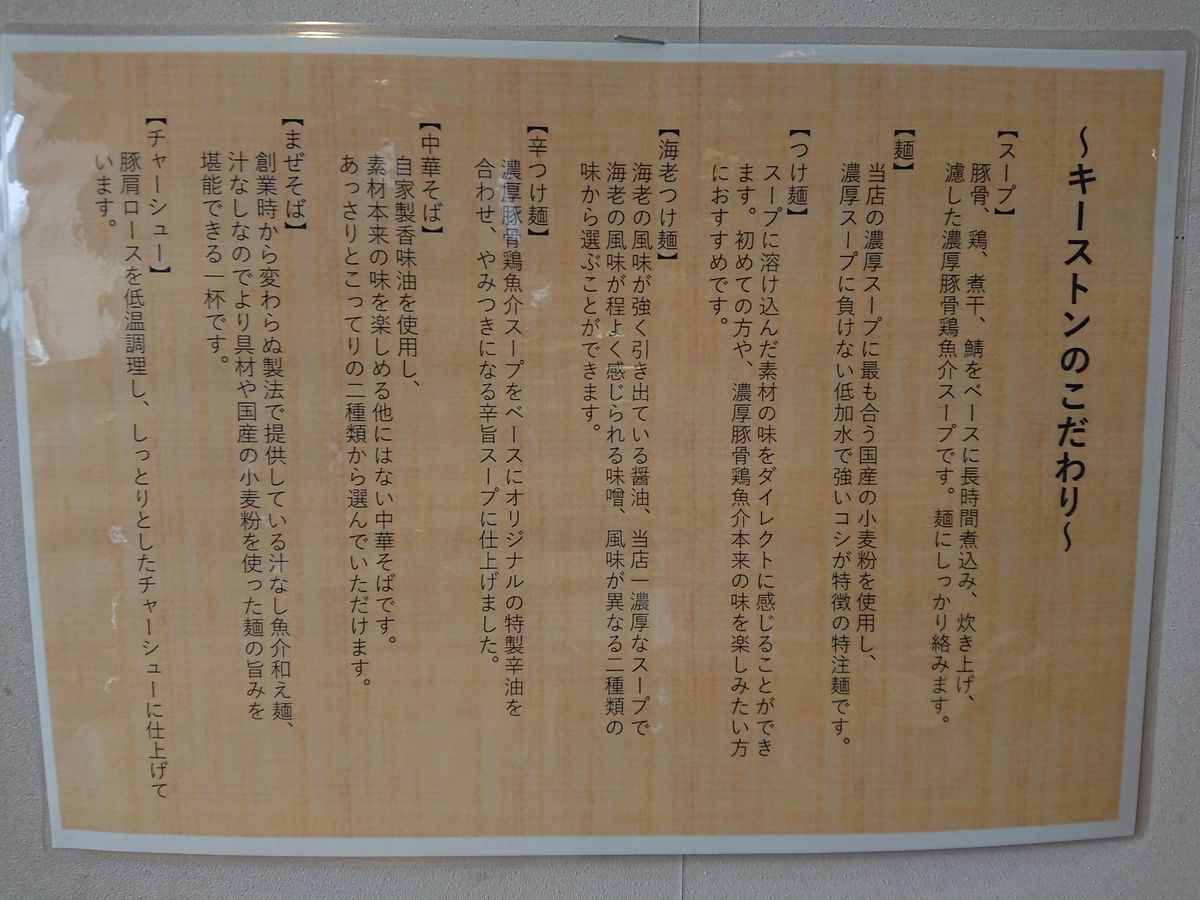 ～キーストンのこだわり～
【スープ】
豚骨、鶏、煮干、鯖をベースに長時間煮込み、炊き上げ、
濾した濃厚豚骨鶏魚介スープです。麺にしっかり絡みます。
【麺】
当店の濃厚スープに最も合う国産の小麦粉を使用し、
濃厚スープに負けない低加水で強いコシが特徴の特注麺です。
【つけ麺】
スープに溶け込んだ素材の味をダイレクトに感じることができ
ます。初めての方や、濃厚豚骨鶏魚介本来の味を楽しみたい方
におすすめです。
【海老つけ麺】
海老の風味が強く引き出ている醤油、当店一濃厚なスープで
海老の風味が程よく感じられる味噌、風味が異なる二種類の
味から選ぶことができます。
【辛つけ麺】
濃厚豚骨鶏魚介スープをベースにオリジナルの特製辛油を
合わせ、やみつきになる辛旨スープに仕上げました。
【中華そば】
自家製香味油を使用し、
素材本来の味を楽しめる他にはない中華そばです。
あっさりとこってりの二種類から選んでいただけます。
【まぜそば】
創業時から変わらぬ製法で提供している汁なし魚介和え麺、
汁なしなのでより具材や国産の小麦粉を使った麺の旨みを
堪能できる一杯です。
【チャーシュー】
豚肩ロースを低温調理し、しっとりとしたチャーシューに仕上げて
います。